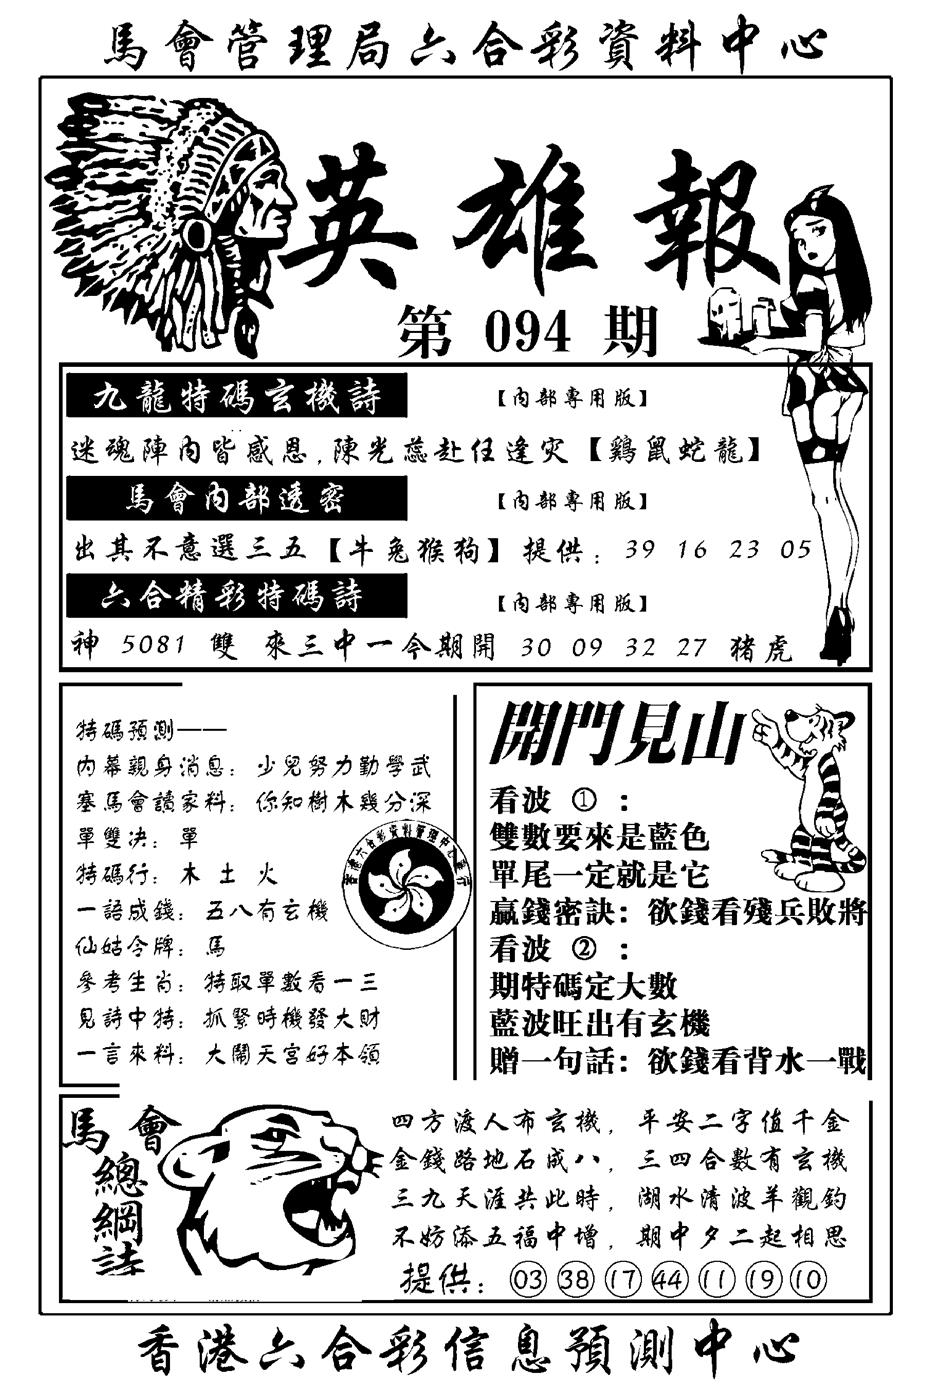 馬會管理局六合彩資料中心
英雄報
第 094 期
九龍特碼玄機詩 【內部專用版】
迷魂陣內皆感恩,陳光蕊赴任逢灾【鷄鼠蛇龍】
馬會內部透密 【內部專用版】
出其不意選三五【牛兔猴狗】 提供: 39 16 23 05
六合精彩特碼詩 【內部專用版】
神 5081 雙 來三中一今期開 30 09 32 27 猪虎
特碼預測——
內幕親身消息: 少兒努力勤學武
塞馬會讀家料: 你知樹木幾分深
單雙决: 單
特碼行: 木 土 火
一語成錢: 五八有玄機
仙姑令牌: 馬
參考生肖: 特取單數看一三
見詩中特: 抓緊時機發大财
一言來料: 大鬧天宮好本領
開門見山
看波 ① :
雙數要來是藍色
單尾一定就是它
贏錢密訣: 欲錢看殘兵敗將
看波 ② :
期特碼定大數
藍波旺出有玄機
贈一句話: 欲錢看背水一戰
馬會
總綱詩
四方渡人布玄機, 平安二字值千金
金錢路地石成八, 三四合數有玄機
三九天涯共此時, 湖水清波羊觀釣
不妨添五福中增, 期中夕二起相思
提供: 03 38 17 44 11 19 10
香港六合彩信息預測中心